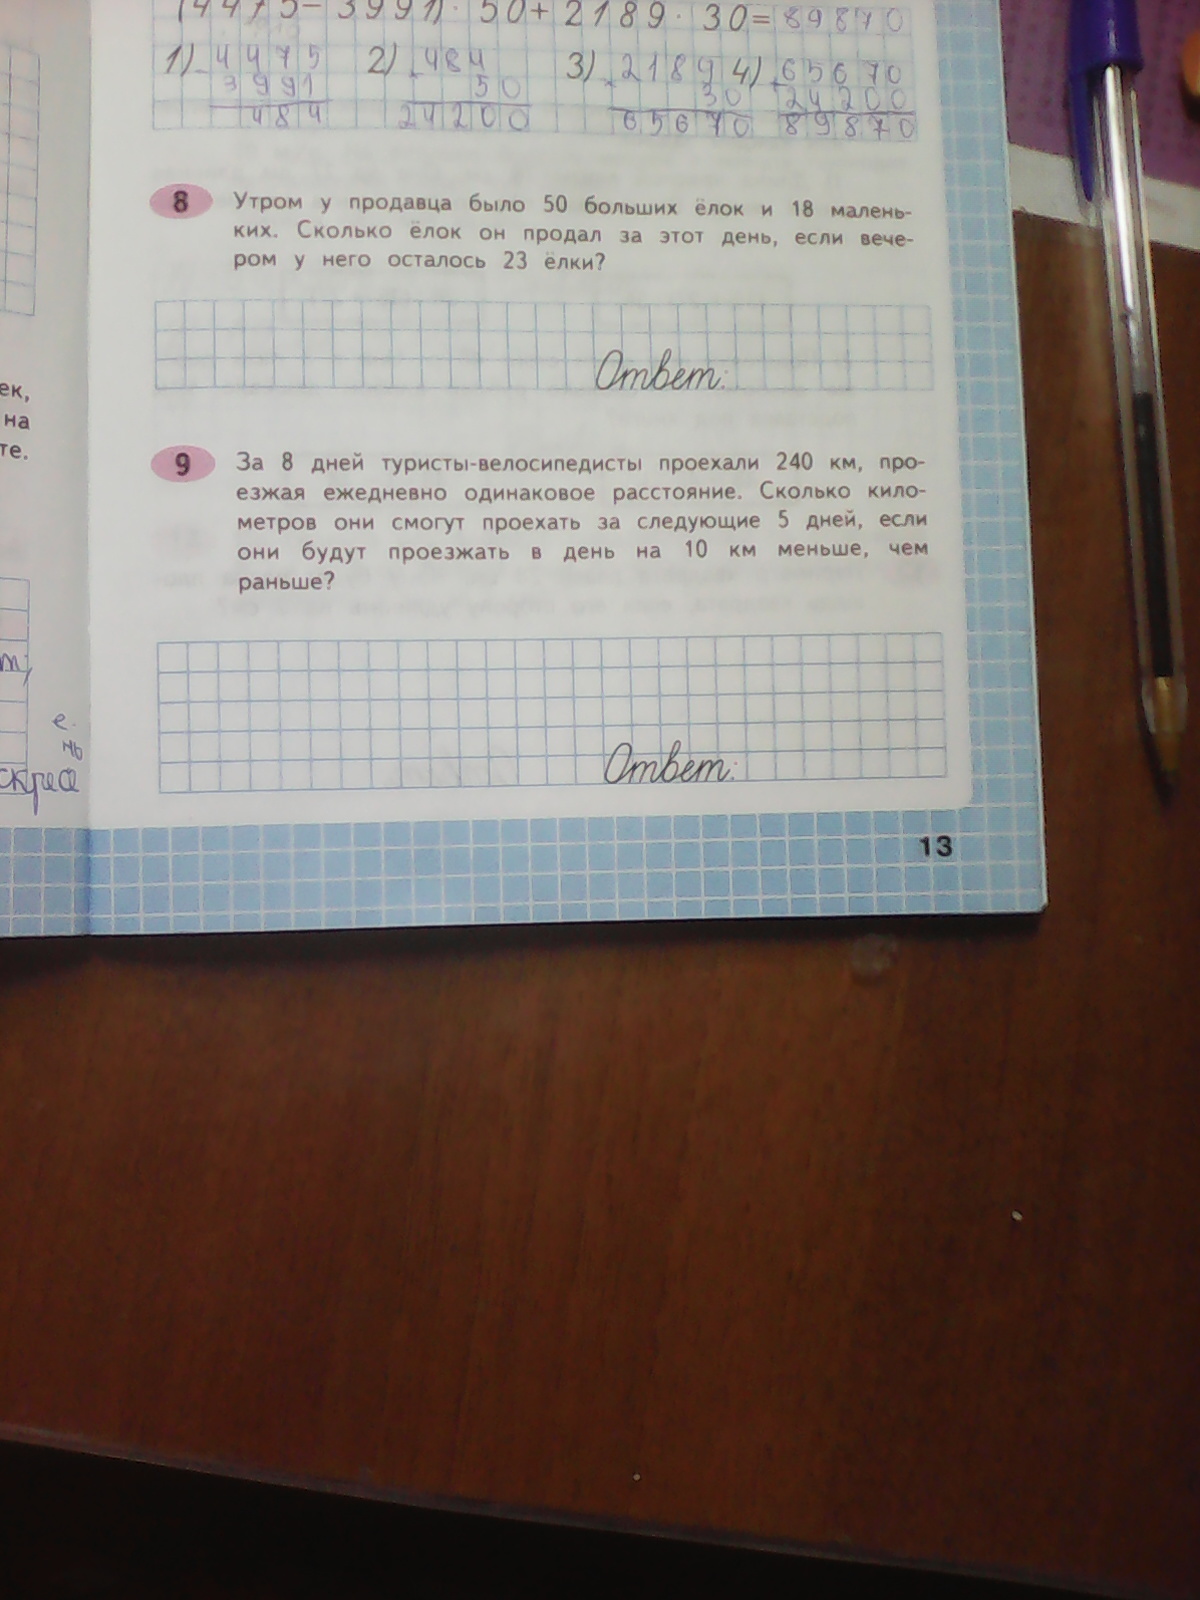 (4475 - 3991) · 50 + 2189 · 30 = 89870
1) 4475 2) 484 3) 2189 4) 65670
3991 50 30 24200
484 24200 65670 89870
8 Утром у продавца было 50 больших ёлок и 18 малень-
ких. Сколько ёлок он продал за этот день, если вече-
ром у него осталось 23 ёлки?
Ответ:
ек,
на
те.
9 За 8 дней туристы-велосипедисты проехали 240 км, про-
езжая ежедневно одинаковое расстояние. Сколько кило-
метров они смогут проехать за следующие 5 дней, если
они будут проезжать в день на 10 км меньше, чем
раньше?
Ответ:
е.
нь
13